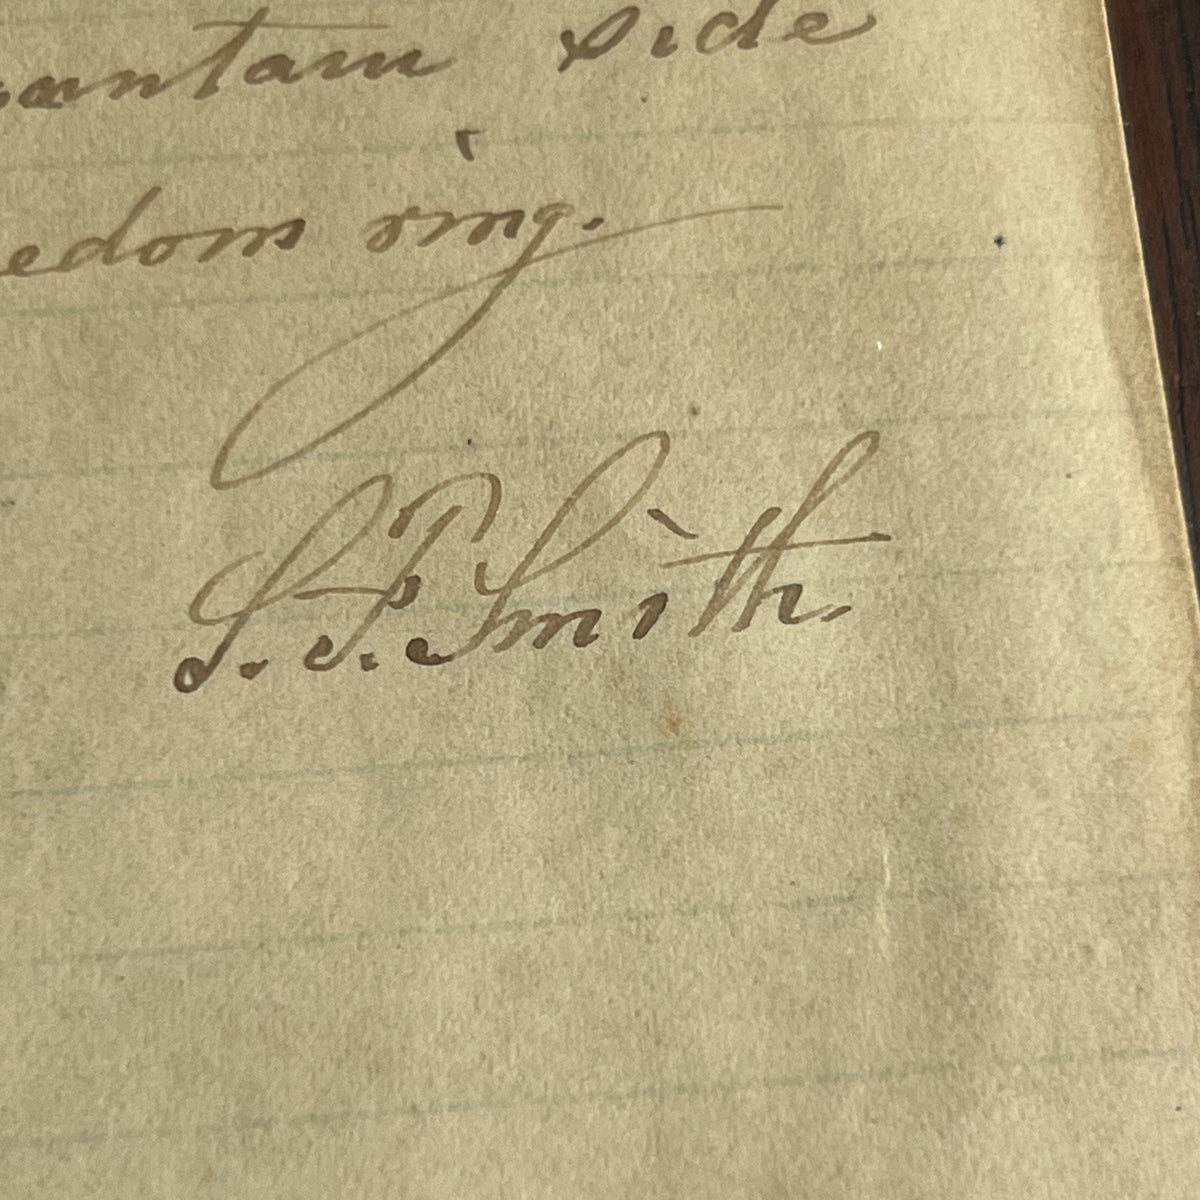 ountain side
edom ring.
S. F. Smith.